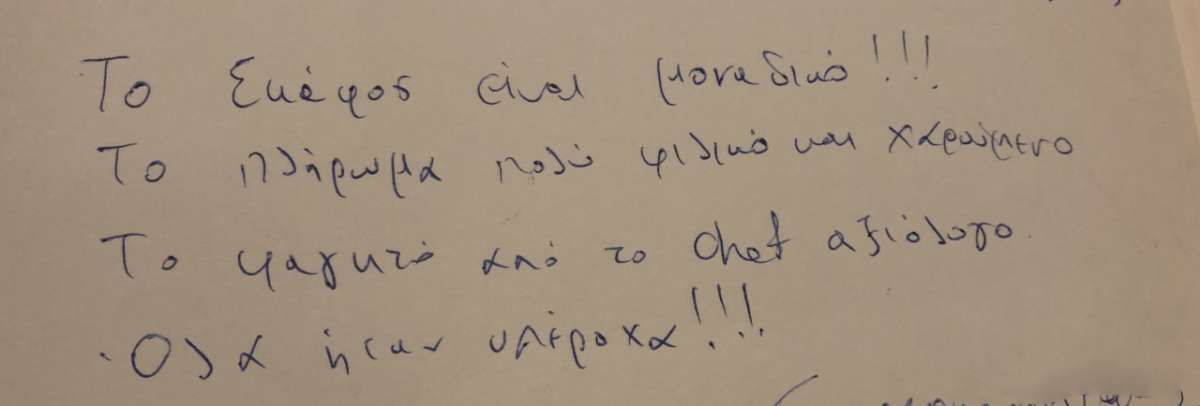 Το Σκάφος είναι μοναδικό!!!
Το πλήρωμα πολύ φιλικό και χαρούμενο
Το φαγητό από το chef αξιόλογο.
Όλα ήταν υπέροχα!!!